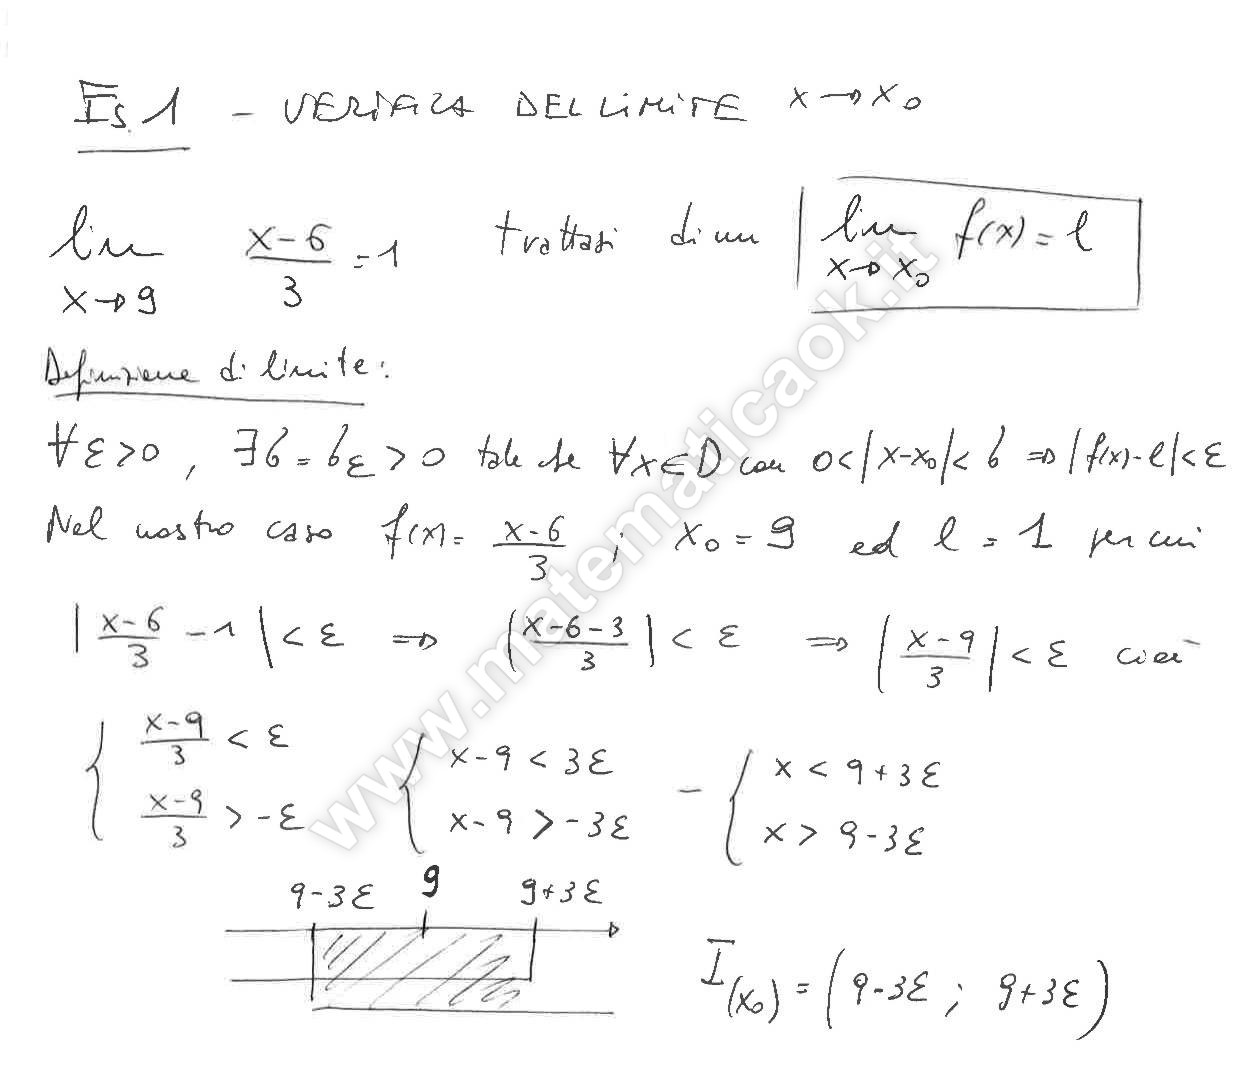 Es. 1 - VERIFICA DEL LIMITE x → x₀
lim x→9 (x-6)/3 = 1 trattasi di un lim x→x₀ f(x) = l
Definizione di limite:
∀ε>0, ∃δ=δ_ε>0 tale che ∀x∈D con 0<|x-x₀|<δ ⇒ |f(x)-l|<ε
Nel nostro caso f(x) = (x-6)/3 ; x₀ = 9 ed l = 1 per cui
|(x-6)/3 - 1| < ε ⇒ |(x-6-3)/3| < ε ⇒ |(x-9)/3| < ε cioè
{ (x-9)/3 < ε { x-9 < 3ε - { x < 9+3ε
(x-9)/3 > -ε x-9 > -3ε x > 9-3ε
9-3ε 9 9+3ε
I(x₀) = (9-3ε ; 9+3ε)
www.matematicaok.it